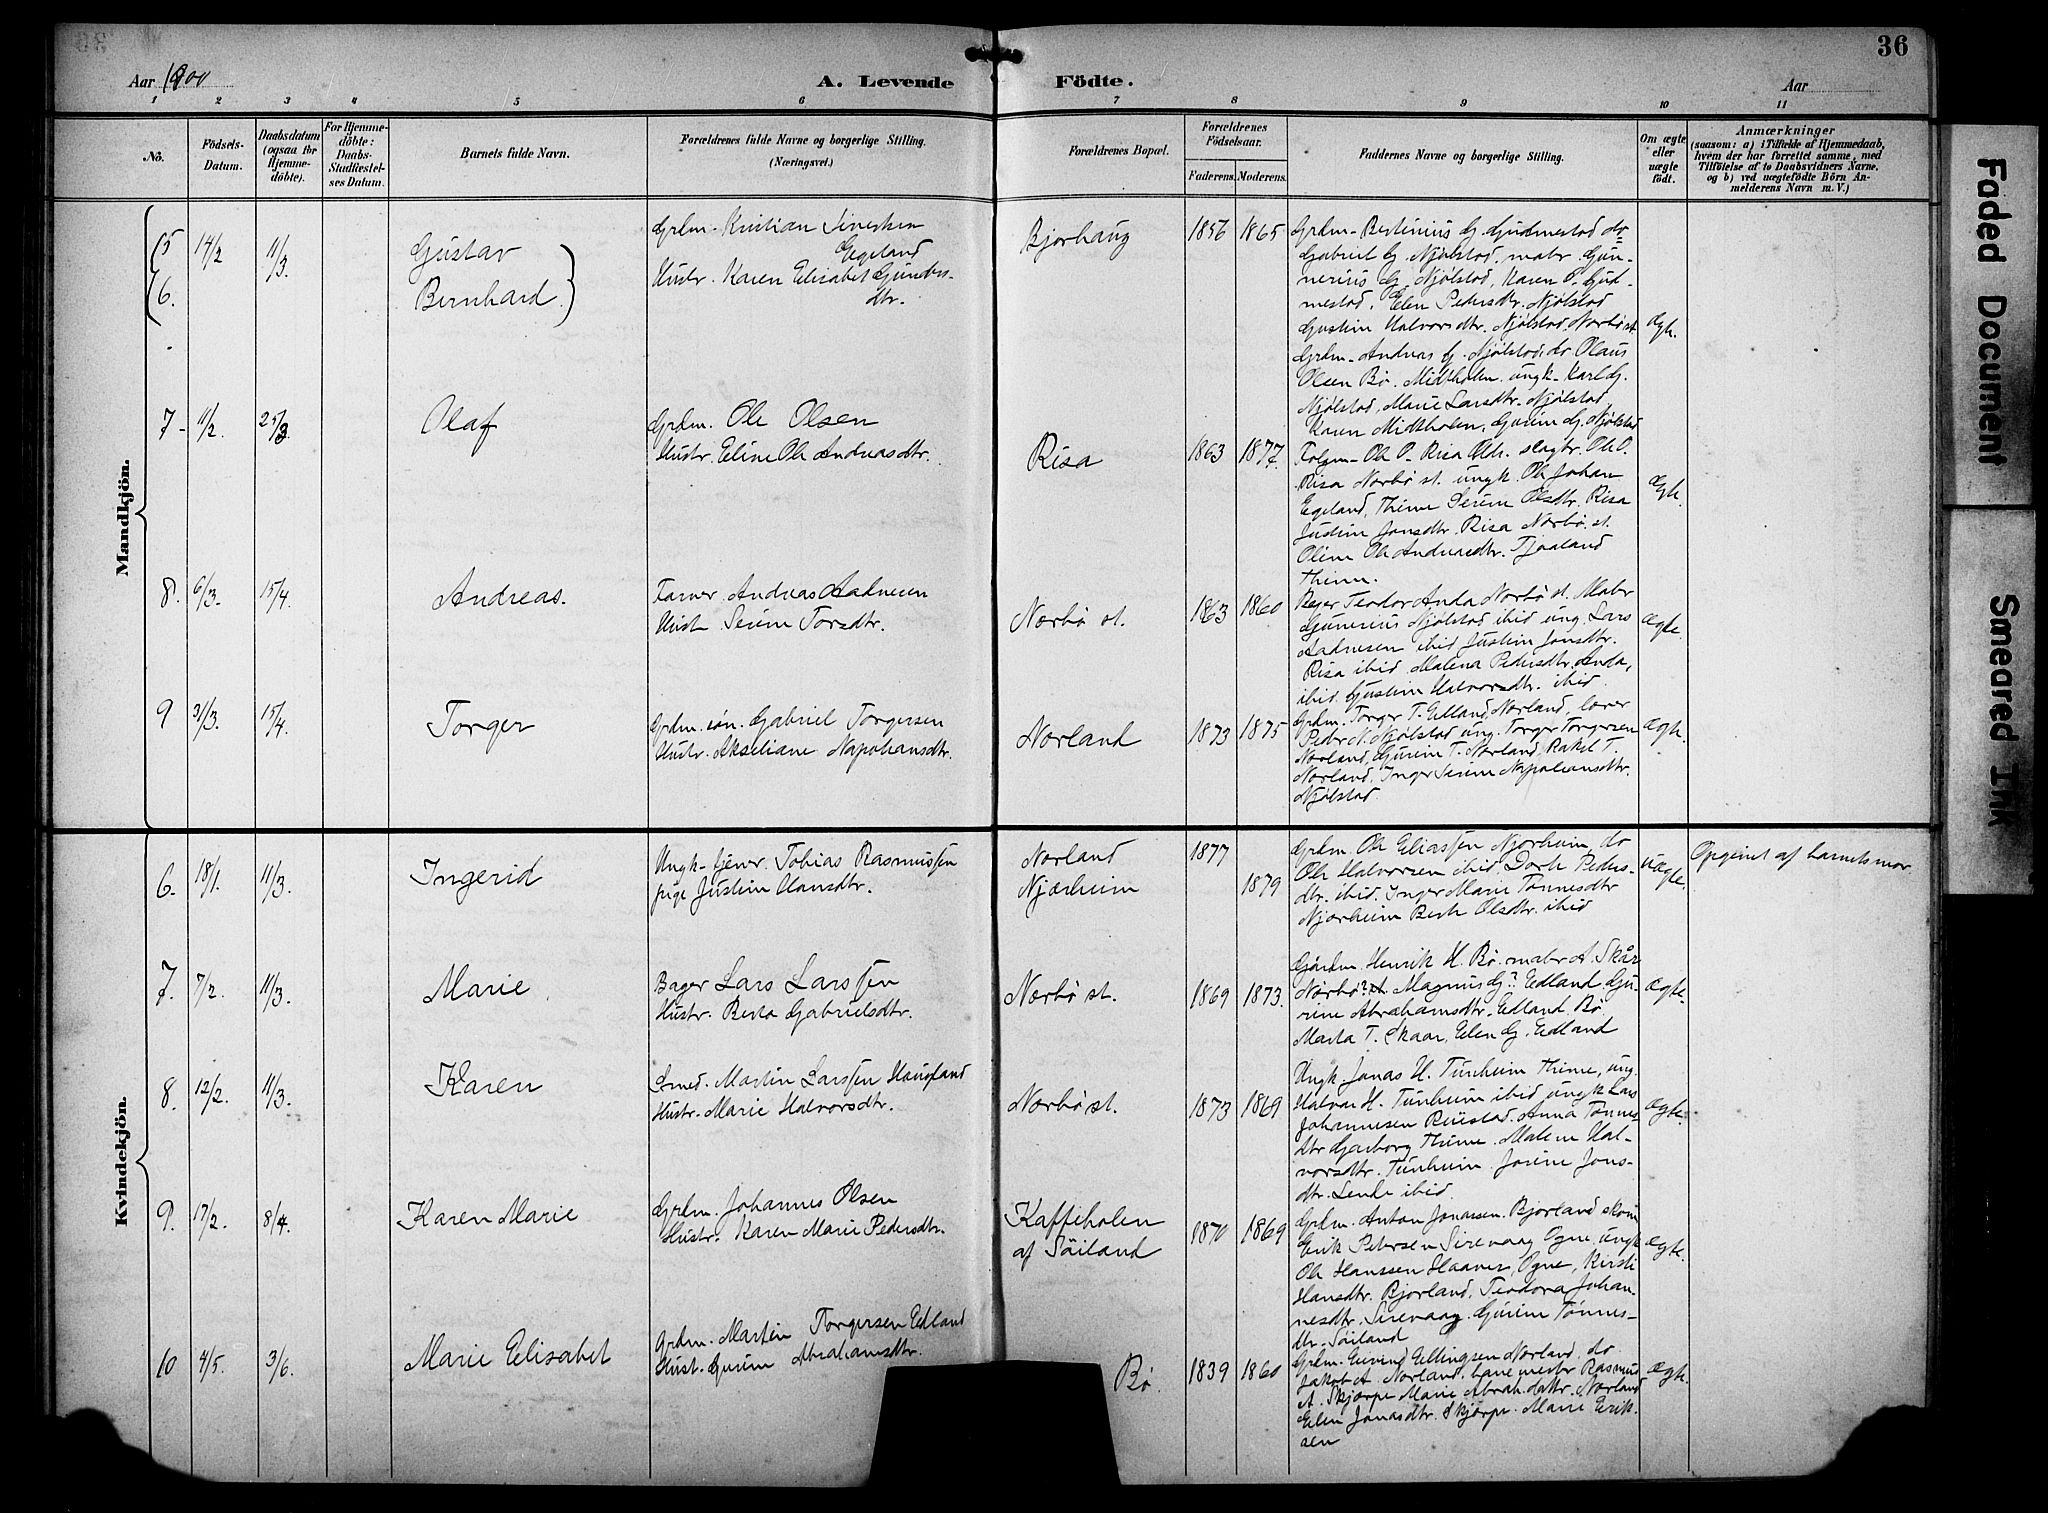 36
Aar 1900
A. Levende Födte.
Aar
1 2 3 4 5 6 7 8 9 10 11
No.
Födsels-Datum.
Daabsdatum (ogsaa for Hjemme-döbte).
For Hjemme-döbte: Daabs-Stadfæstel-ses Datum.
Barnets fulde Navn.
Forældrenes fulde Navne og borgerlige Stilling.
(Næringsvei.)
Forældrenes Bopæl.
Forældrenes Födselsaar.
Faderens. Moderens.
Faddernes Navne og borgerlige Stilling.
Om ægte eller uægte födt.
Anmærkninger
(saasom: a) i Tilfælde af Hjemmedaab, hvem der har forrettet samme, med Tilföielse af to Daabsvidners Navne, og b) ved uægtefödte Börn An-melderens Navn m. V.)
Mandkjön.
5 14/2 11/3 Gustav
6. Bernhard
Grdm. Kristian Sivertsen
Egeland
Hustr. Karen Elisabet Gunders-
dtr.
Bjorhaug 1856 1865
Grdm. Bertinius G. Gudmestad do
Gabriel G. Njølstad, mabr. Gun-
nerius G. Njølstad, Karen O. Gud-
mestad, Elen Pedersdtr. Njølstad
Gustine Halvorsdtr. Njølstad, Nærbø st.
Grdm. Andreas G. Njølstad, do Olaus
Olsen Bø. Midtholen. ungk. Karl G.
Njølstad, Marie Larsdtr. Njølstad
Karen Midtholen, Gurine G. Njølstad
ægte.
7 11/2. 25/3. Olaf
Grdm. Ole Olsen
Hustr. Eline Ole Andreasdtr.
Risa 1863 1877.
Ole O. Risa Æld. slagtr. Ole O.
Risa Nærbø st. ungk. Ole Johan
Egeland, Thime Serine Olsdtr. Risa
Justine Jonsdtr. Risa Nærbø st.
Oline Ole Andreasdtr. Tjaaland
Thime.
ægte.
8. 6/3. 15/4. Andreas.
Farver. Andreas Aadnesen
Hust. Serine Torsdtr.
Nærbø st. 1863 1860
Bager Teodor Anda Nærbø st. Mabr
Gunerius Njølstad ibid ung. Lars
Aadnesen ibid Justine Jonsdtr.
Risa ibid. Malena Pedersdtr. Anda,
ibid Gustine Halvorsdtr. ibid
ægte.
9 31/3. 15/4. Torger
Grdm. søn. Gabriel Torgersen
Hustr. Akseliane Napoleansdtr.
Norland 1873 1875
Grdm. Torger T. Edland, Norland, lærer
Peder N. Njølstad ung. Torger Torgersen
Norland, Gurine T. Norland, Rakel T.
Norland, Inger Serine Napoleansdtr.
Njølstad.
ægte.
Kvindekjön.
6. 18/1. 11/3. Ingerid
Ungk. tjener. Tobias Rasmussen
pige Justine Hansdtr.
Norland
Njærheim
1877
1879
Grdm. Ole Eliassen Njorheim, do
Ole Halvorsen ibid, Dorte Peders-
dtr. ibid. Inger Marie Tønnesdtr
Njorheim Berte Olsdtr. ibid
uægte.
Opgivet af barnets mor.
7. 7/2. 11/3. Marie
Bager Lars Larssen
Hustr. Berta Gabrielsdtr.
Nærbø st. 1869 1873.
Gårdm. Henrik H. Bø. mabr A. Skår
Nærbø st. Magnus G. Edland Gu-
rine Abrahamsdtr. Edland. Bø
Marta T. Skaar, Elen G. Edland
ægte.
8. 12/2. 11/3. Karen
Smed. Martin Larssen Haugland
Hustr. Marie Halvorsdtr.
Nærbø st. 1873 1869
Ungk. Jonas H. Tunheim Thime, ung.
Halvar H. Tunheim ibid, ungk Lars
Johannesen Anna Tønnes-
dtr Garborg Thime. Malene Hal-
vorsdtr. Tunheim Josine Jons-
dtr. Lende ibid.
ægte.
9. 17/2. 8/4. Karen Marie
Grdm. Johannes Olsen
Hustr. Karen Marie Pedersdtr.
Kaffeholen
af Söiland
1870 1869
Grdm. Anton Jonassen. Bjorland skom
Erik Petersen Sirevaag Ogne, ungk
Ole Hanssen Haaver, Ogne, Kirsti
Hansdtr. Bjorland, Teodora Johan-
nesdtr. Sirevaag. Gurine Tønnes-
dtr. Söiland
ægte.
10 4/5. 3/6. Marie Elisabet
Grdm. Martin Torgersen Edland
Hust. Gurine Abrahamsdtr.
Bø. 1839 1860
Grdm. Eivind Ellingsen Norland, do
Jakob A. Norland, banemester Rasmus
A. Skjærpe Marie Abrah.dattr. Norland
Elen Jonasdtr. Skjærpe. Marie Erik-
sen
ægte.
Faded Document
Smeared Ink